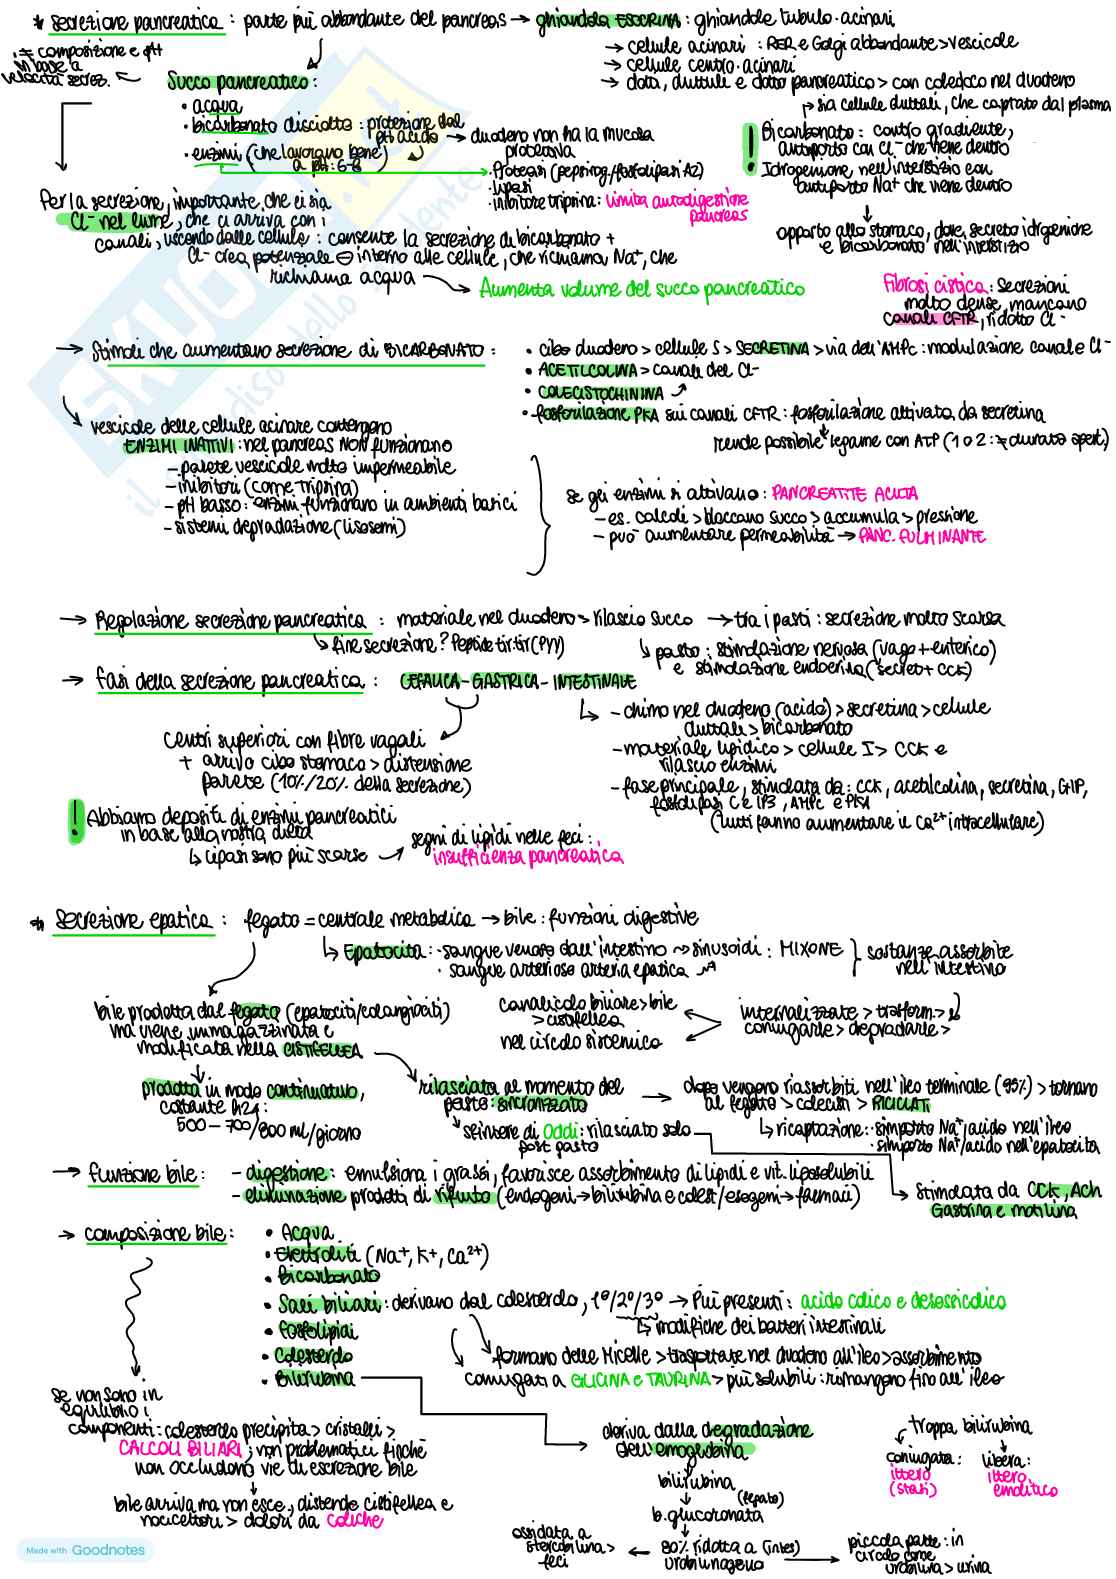 * secrezione pancreatica : parte più abbondante del pancreas → ghiandola ESOCRINA : ghiandole tubulo-acinari
≠ composizione e pH
in base a
velocità secrez.
→ cellule acinari : RER e Golgi abbondante > vescicole
→ cellule centro-acinari
→ dotti duttuli e dotto pancreatico > con coledoco nel duodeno
Succo pancreatico :
• acqua
• bicarbonato disciolto : protezione dal pH acido → duodeno non ha la mucosa protettiva
• enzimi (che lavorano bene a pH : 6-8)
• Proteasi (pepsinog/fosfolipasi A2)
• lipasi
• inibitore tripsina : limita autodigestione pancreas
↱ sia cellule duttali, che captato dal plasma
! Bicarbonato : contro gradiente,
antiporto con Cl⁻ che viene dentro
Idrogenione nell'interstizio con
antiporto Na⁺ che viene dentro
↓
opposto allo stomaco, dove secreto idrogenione
e bicarbonato nell'interstizio
Per la secrezione, importante che ci sia
Cl⁻ nel lume, che ci arriva con i
canali, uscendo dalle cellule : consente la secrezione di bicarbonato +
Cl⁻ crea potenziale ⊖ interno alle cellule, che richiama Na⁺, che
richiama acqua
→ Aumenta volume del succo pancreatico
Fibrosi cistica : secrezioni
molto dense, mancano
canali CFTR, ridotto Cl⁻
→ Stimoli che aumentano secrezione di BICARBONATO :
• cibo duodeno > cellule S > SECRETINA > via dell'AMPc : modulazione canale Cl⁻
• ACETILCOLINA > canali del Cl⁻
• COLECISTOCHININA
• fosforilazione PKA sui canali CFTR : fosforilazione attivata da secretina
rende possibile legame con ATP (1 o 2 : ≠ durata apert.)
vescicole delle cellule acinare contengono
ENZIMI INATTIVI : nel pancreas NON funzionano
- parete vescicole molto impermeabile
- inibitori (come tripsina)
- pH basso : enzimi funzionano in ambienti basici
- sistemi degradazione (lisosomi)
se gli enzimi si attivano : PANCREATITE ACUTA
- es. calcoli > bloccano succo > accumula > pressione
- può aumentare permeabilità → PANC. FULMINANTE
→ Regolazione secrezione pancreatica : materiale nel duodeno > rilascio succo → tra i pasti : secrezione molto scarsa
↳ fine secrezione? Peptide tir-tir (PYY)
↳ pasto : stimolazione nervosa (vago + enterico)
e stimolazione endocrina (secret + CCK)
→ fasi della secrezione pancreatica : CEFALICA - GASTRICA - INTESTINALE
Centri superiori con fibre vagali
+ arrivo cibo stomaco > distensione
parete (10%/20% della secrezione)
- chimo nel duodeno (acido) > secretina > cellule
duttali > bicarbonato
- materiale lipidico > cellule I > CCK e
rilascio enzimi
- fase principale, stimolata da : CCK, acetilcolina, secretina, GIP,
fosfolipasi C e IP3, AMPc e PKA
(tutti fanno aumentare il Ca²⁺ intracellulare)
! Abbiamo depositi di enzimi pancreatici
in base alla nostra dieta
↳ lipasi sono più scarse → segni di lipidi nelle feci :
insufficienza pancreatica
* secrezione epatica : fegato = centrale metabolica → bile : funzioni digestive
↳ Epatocita : • sangue venoso dall'intestino → sinusoidi : MIXONE
• sangue arterioso arteria epatica
sostanze assorbite
nell'intestino
internalizzate > trasform. >
coniugarle > degradarle >
canalicolo biliare > bile
> cistifellea
nel circolo sistemico
bile prodotta dal fegato (epatociti/colangiociti)
ma viene immagazzinata e
modificata nella CISTIFELLEA
prodotta in modo continuativo,
costante h24 :
500 - 700/800 ml/giorno
rilasciata al momento del
pasto : sincronizzato
↳ sfintere di Oddi : rilasciato solo
post pasto
→ dopo vengono riassorbiti nell'ileo terminale (95%) > tornano
al fegato > colecisti > RICICLATI
↳ ricaptazione : • simporto Na⁺/acido nell'ileo
• simporto Na⁺/acido nell'epatocita
→ funzione bile : - digestione : emulsiona i grassi, favorisce assorbimento di lipidi e vit. liposolubili
- eliminazione prodotti di rifiuto (endogeni → bilirubina e colest/esogeni → farmaci)
→ Stimolata da CCK, Ach
Gastrina e motilina
→ composizione bile :
• Acqua
• Elettroliti (Na⁺, K⁺, Ca²⁺)
• Bicarbonato
• Sali biliari : derivano dal colesterolo, 1º/2º/3º → Più presenti : acido colico e desossicolico
↳ modifiche dei batteri intestinali
• Fosfolipidi
• Colesterolo
• Bilirubina
formano delle Micelle > trasportate nel duodeno all'ileo > assorbimento
coniugati a GLICINA e TAURINA > più solubili : rimangono fino all'ileo
se non sono in
equilibrio i
componenti : colesterolo precipita > cristalli >
CALCOLI BILIARI ; non problematici finché
non occludono vie di escrezione bile
↓
bile arriva ma non esce, distende cistifellea e
nocicettori > dolori da coliche
deriva dalla degradazione
dell'emoglobina
↓
bilirubina
↓ (fegato)
b. glucoronata
↓
80% ridotta a (intes)
urobilinogeno
ossidata a
stercobilina >
feci
piccola parte : in
circolo come
urobilina > urina
troppa bilirubina
coniugata :
ittero
(stasi)
libera :
ittero
emolitico
Made with Goodnotes
SKUO
il paradiso dello studente